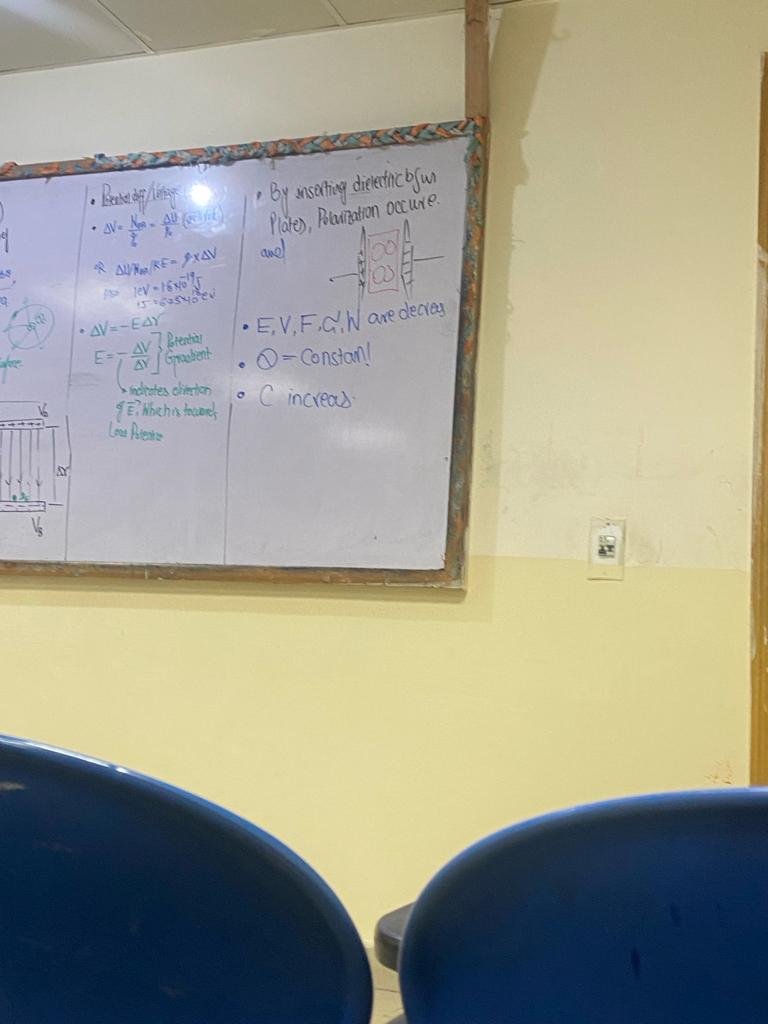 • Potential diff/Voltage
• ΔV = W_AB/q = ΔU/q₀
OR ΔU/W_AB/KE = q×ΔV
1eV = 1.6×10⁻¹⁹J
1J = 6.25×10¹⁸eV
• ΔV = -EΔr
E = -ΔV/Δr } Potential Gradient
indicates direction
of E, Which is towards
Low Potential
V_B
Δr
• By inserting dielectric b/w
Plates, Polarization occure.
and
• E, V, F, W are decreas
• Q = Constant
• C increas.